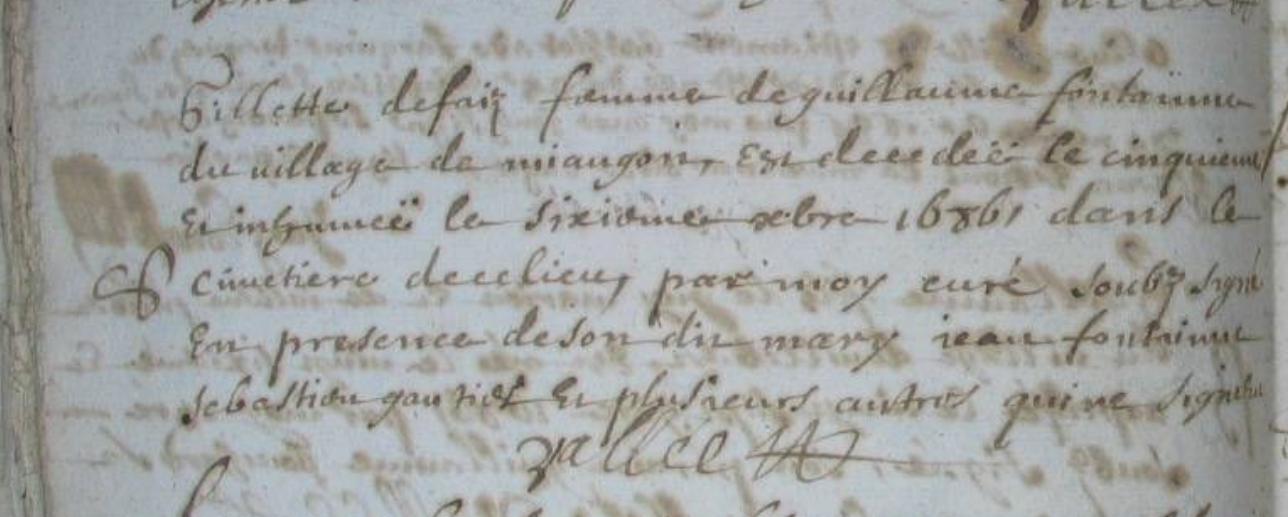 Gillette defaiz famme de guillaume fontainne
du village de miaugon, Est decedeë le cinquieme
Et inhumeë le sixieme xbre 1686 dans le
cimetiere de ce lieu, par moy curé soubz signé
En presence de son dit mary jean fontainne
sebastien gautier Et plusieurs autres qui ne signent
Vallée